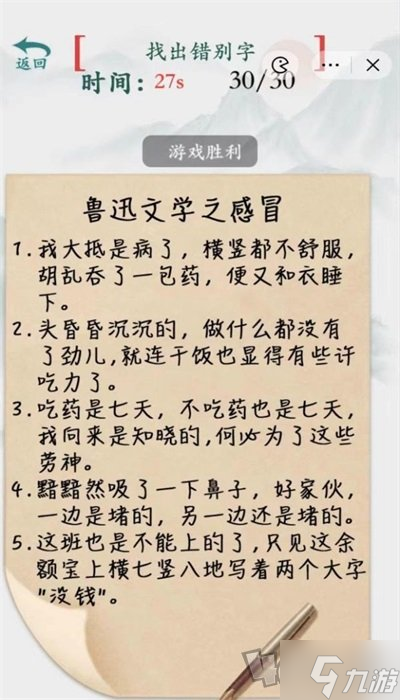 找出错别字
返回
时间：27s 30/30
游戏胜利
鲁迅文学之感冒
1.我大抵是病了，横竖都不舒服，
胡乱吞了一包药，便又和衣睡
下。
2.头昏昏沉沉的，做什么都没有
了劲儿,就连干饭也显得有些许
吃力了。
3.吃药是七天，不吃药也是七天，
我向来是知晓的,何必为了这些
劳神。
4.黯黯然吸了一下鼻子，好家伙，
一边是堵的，另一边还是堵的。
5.这班也是不能上的了,只见这余
额宝上横七竖八地写着两个大字
"没钱"。
九游